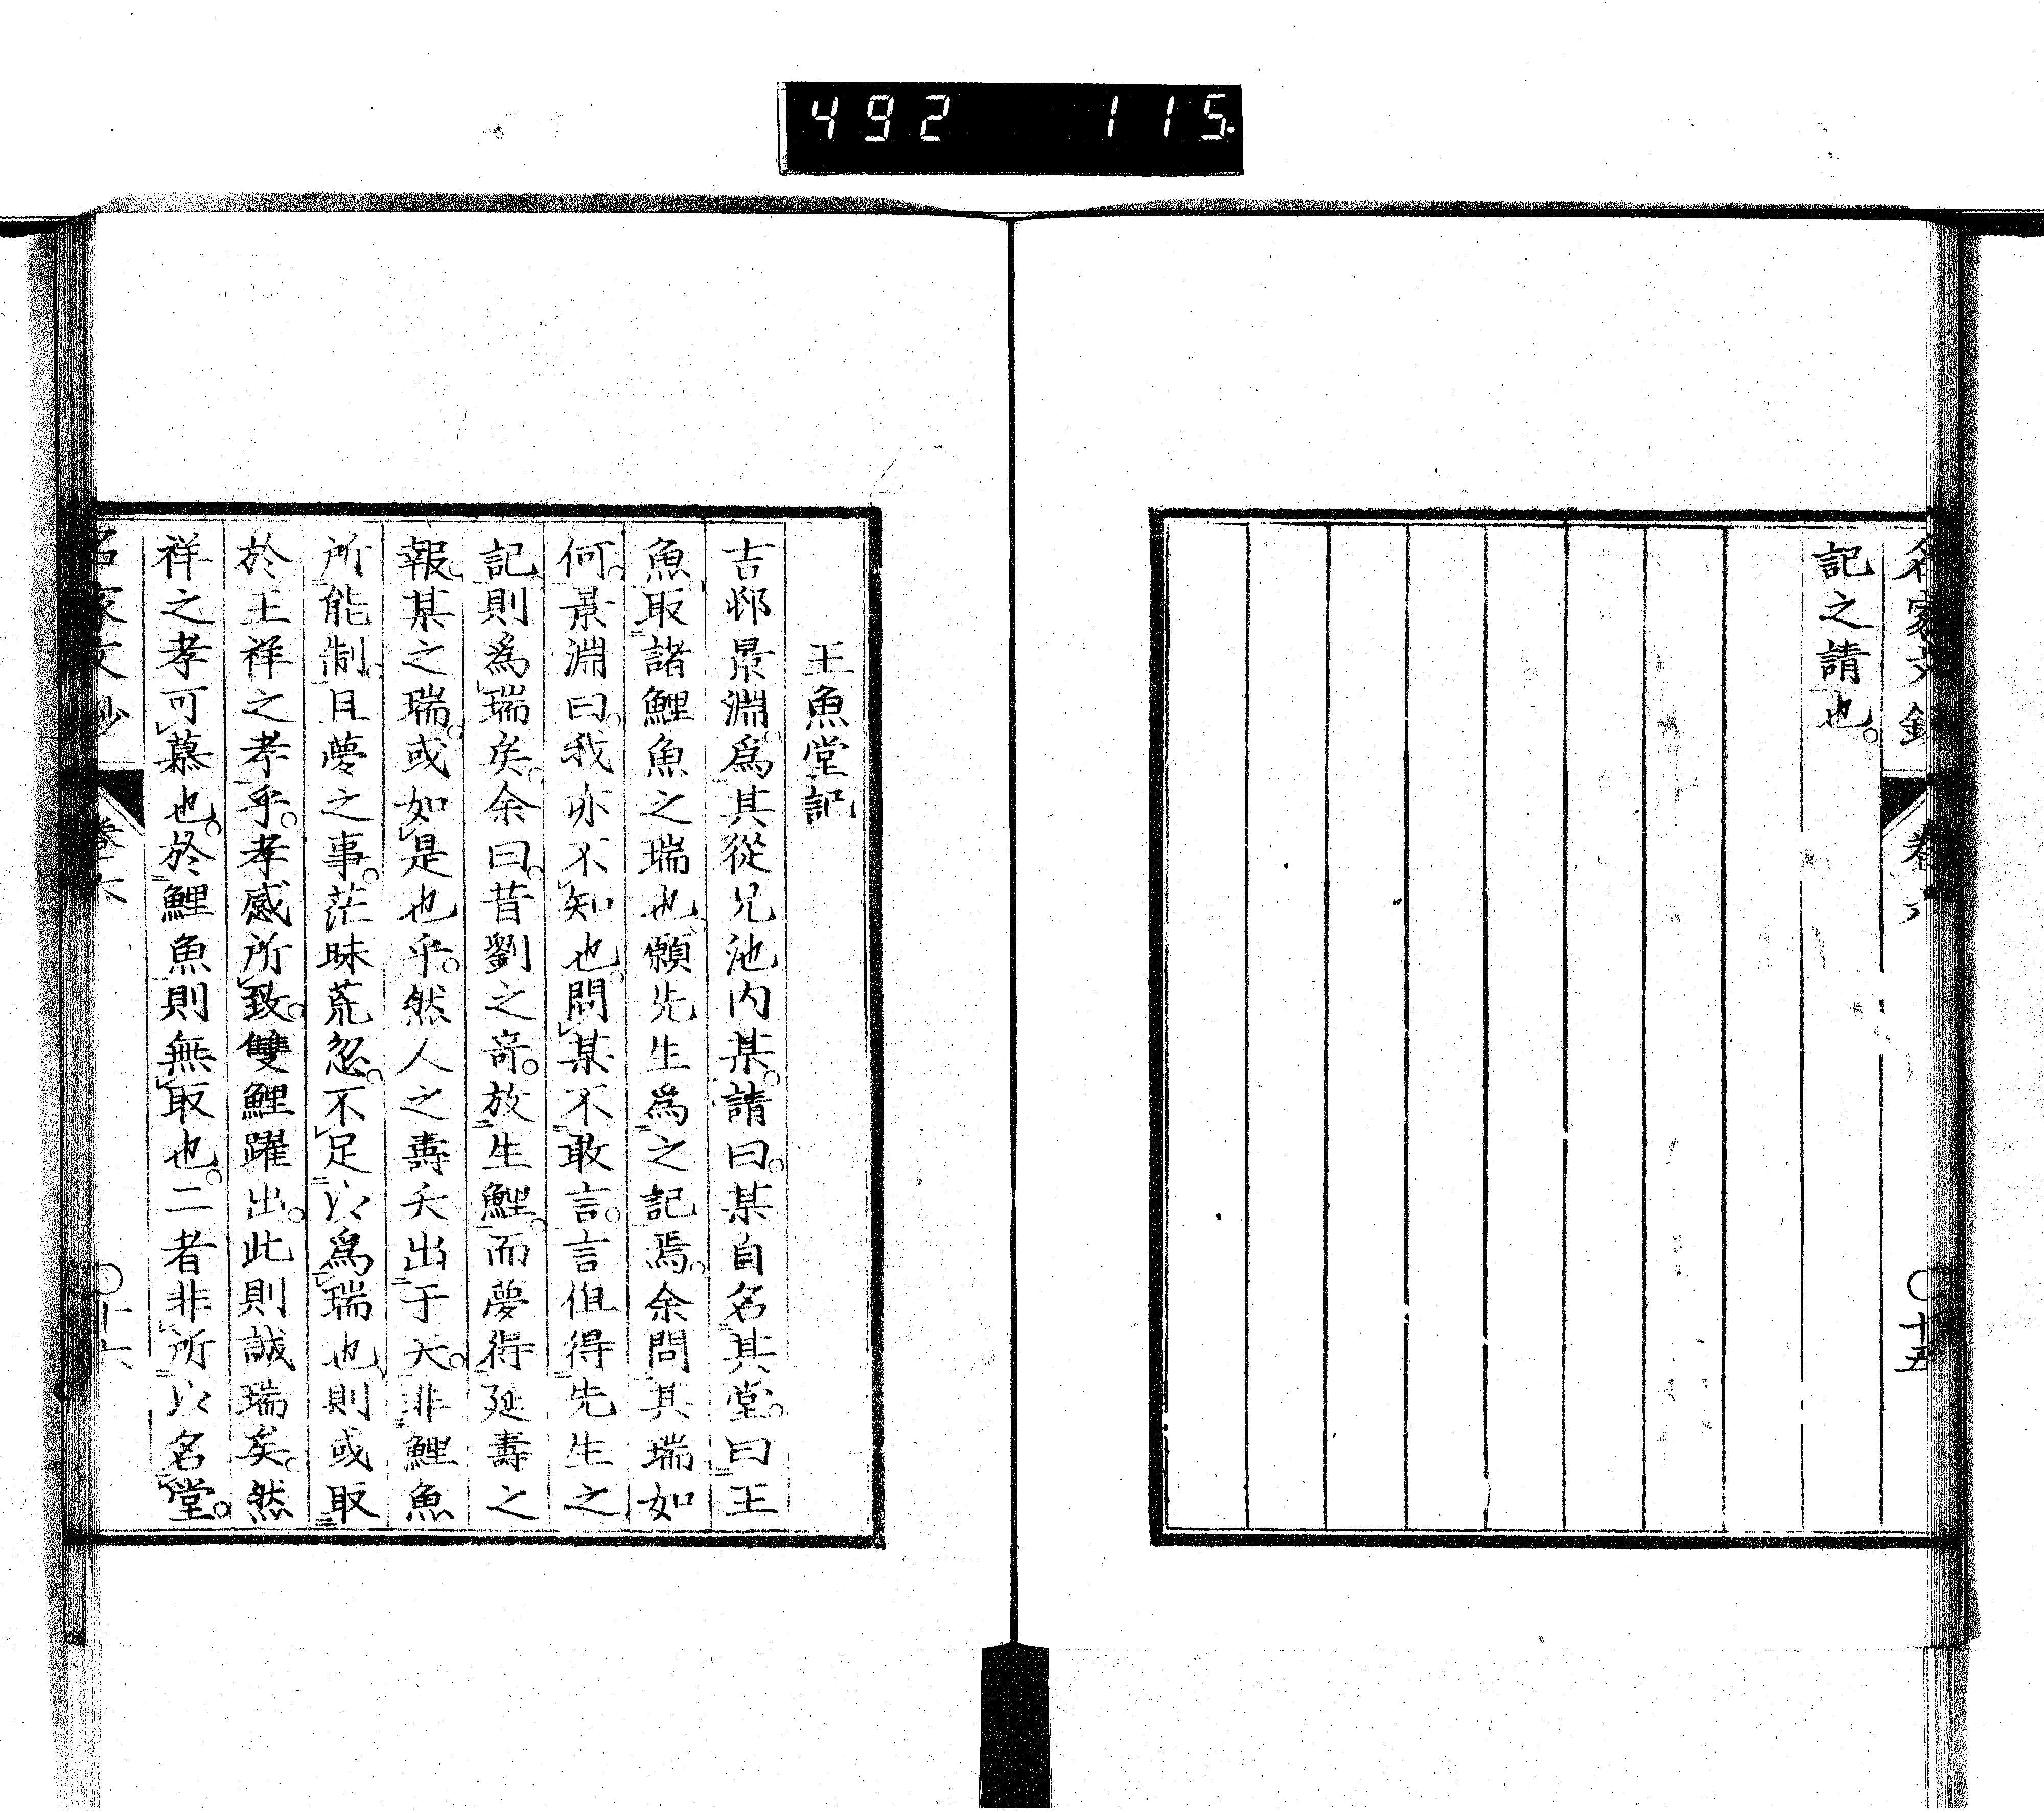 492 115.
名家文鈔 卷六 〇十五
記之請也。
王魚堂記
吉邨景淵。爲其從兄池内某。請曰。某自名其堂。曰王
魚。取諸鯉魚之瑞也。願先生爲之記焉。余問其瑞如
何。景淵曰。我亦不知也。問某不敢言。言但得先生之
記。則爲瑞矣。余曰。昔劉之奇。放生鯉。而夢得延壽之
報。某之瑞。或如是也乎。然人之壽夭出于天。非鯉魚
所能制。且夢之事。茫昧荒忽。不足以爲瑞也。則或取
於王祥之孝乎。孝感所致。雙鯉躍出。此則誠瑞矣。然
祥之孝可慕也。於鯉魚則無取也。二者非所以名堂。
名家文鈔 卷六 〇十六